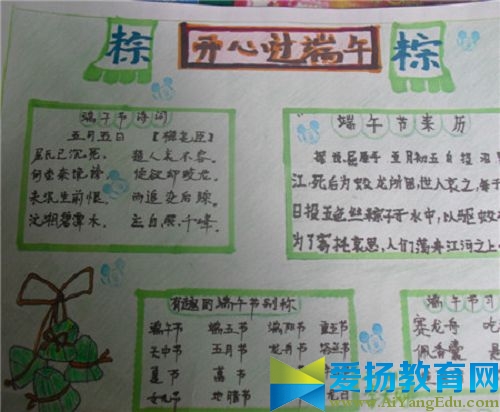 粽 开心过端午 粽
端午节诗词
五月五日 【梅尧臣】
屈氏已沉死， 楚人哀不容。
何尝奈谗谤， 徒欲却蛟龙。
未泯生前恨， 而追没后踪。
沅湘碧潭水，
端午节来历
据说，屈原于五月初五自投汨
江，死后为蛟龙所困，世人哀之，每于
日投五色丝粽子于水中，以驱蛟
为了寄托哀思，人们荡舟江河之上
有趣的端午节别称
端午节 端五节 端阳节 重五节
天中节 五月节 龙舟节 浴兰节
夏节 菖节
女儿节 地腊节 龙日
端午节习
赛龙舟 吃
佩香囊 悬
爱扬教育网
AiYangEdu.Com